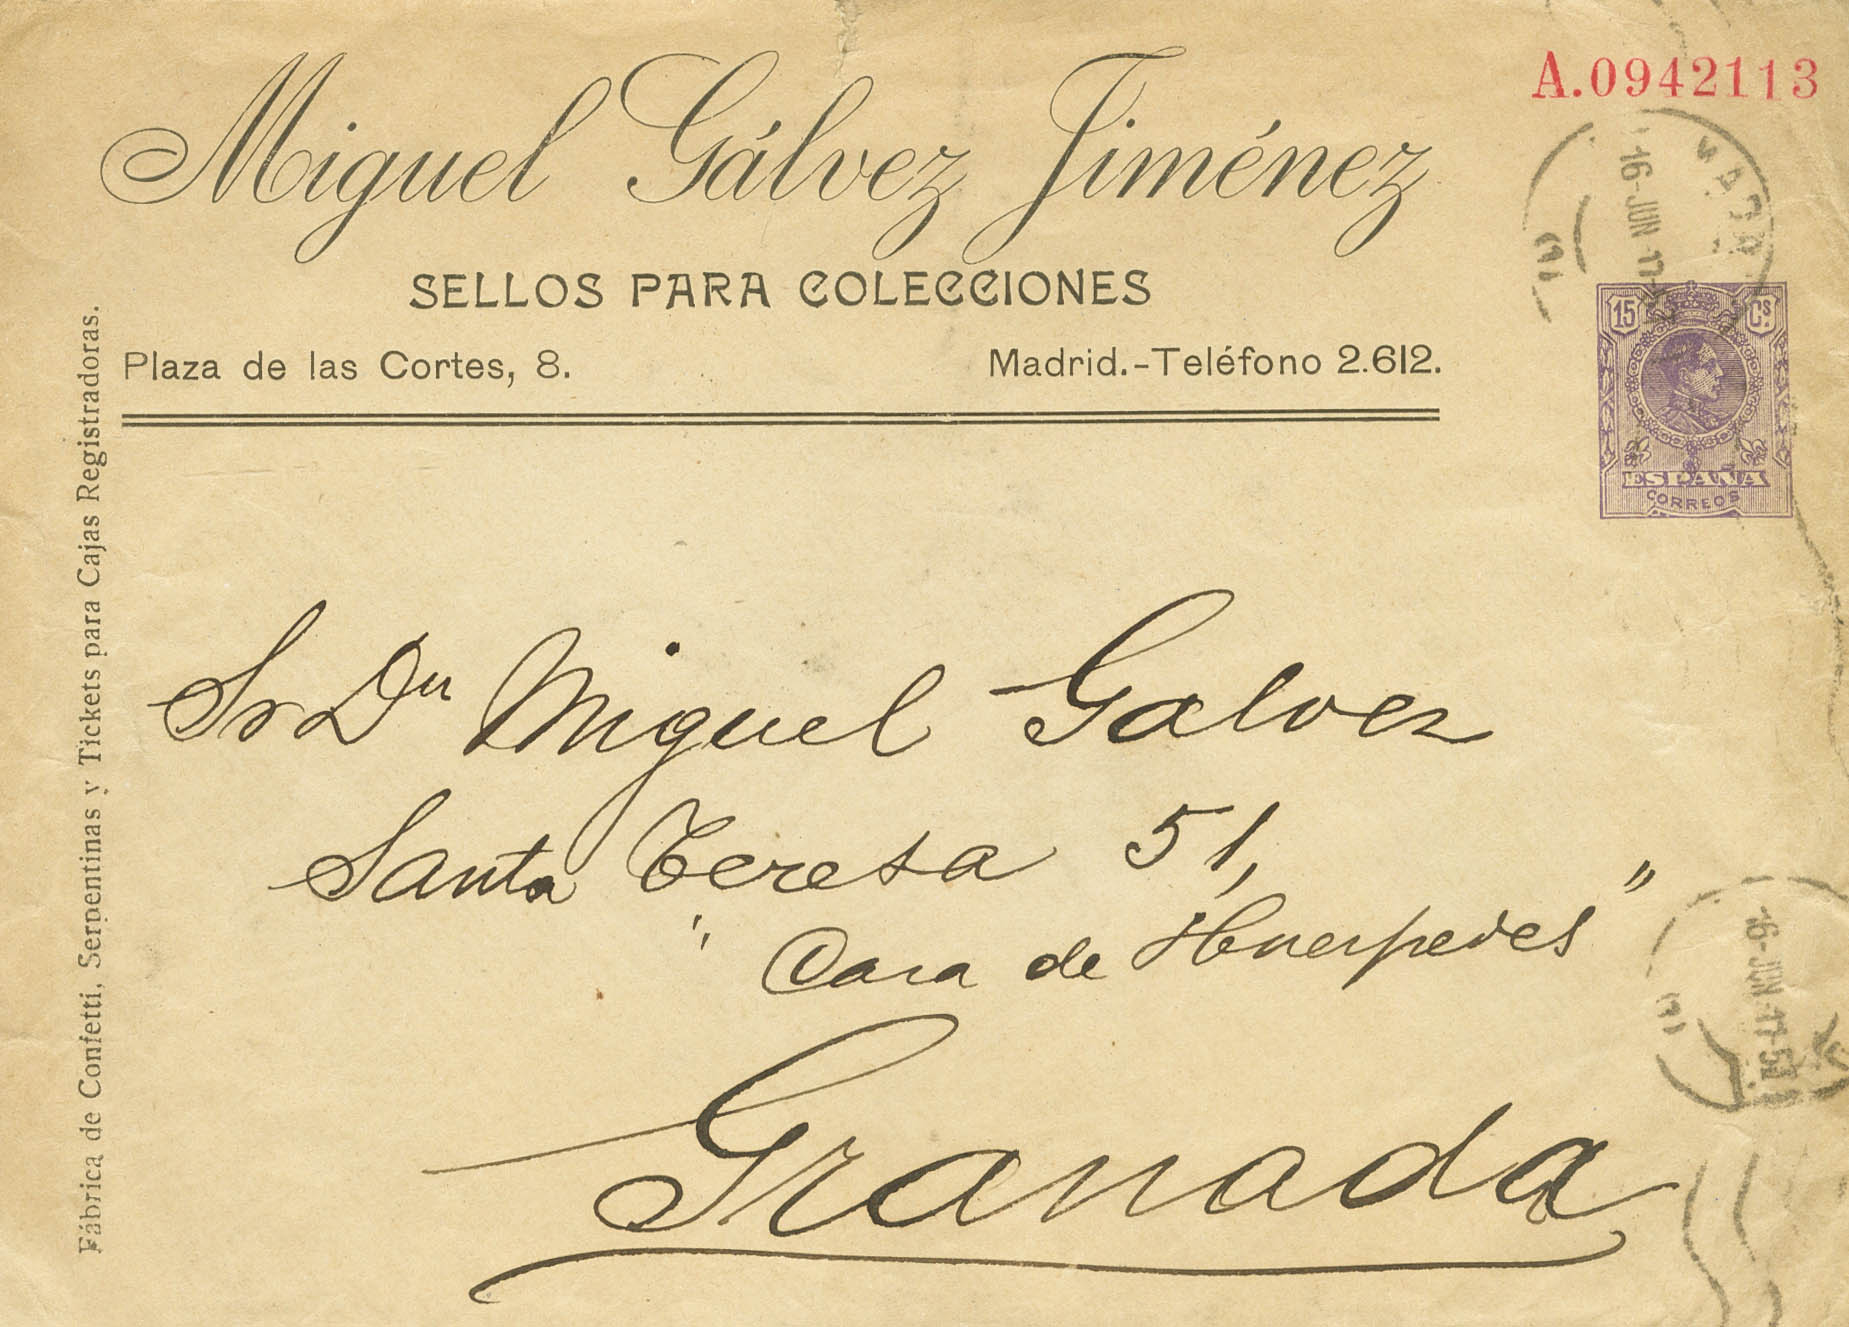 A.0942113
Miguel Gálvez Jiménez
SELLOS PARA COLECCIONES
Plaza de las Cortes, 8.
Madrid.-Teléfono 2.612.
Fábrica de Confetti, Serpentinas y Tickets para Cajas Registradoras.
16-JUN-17
15 Cs
ESPAÑA
CORREOS
Sr Dn Miguel Galvez
Santa Teresa 51,
"Casa de Huespedes"
Granada
16-JUN-17-5